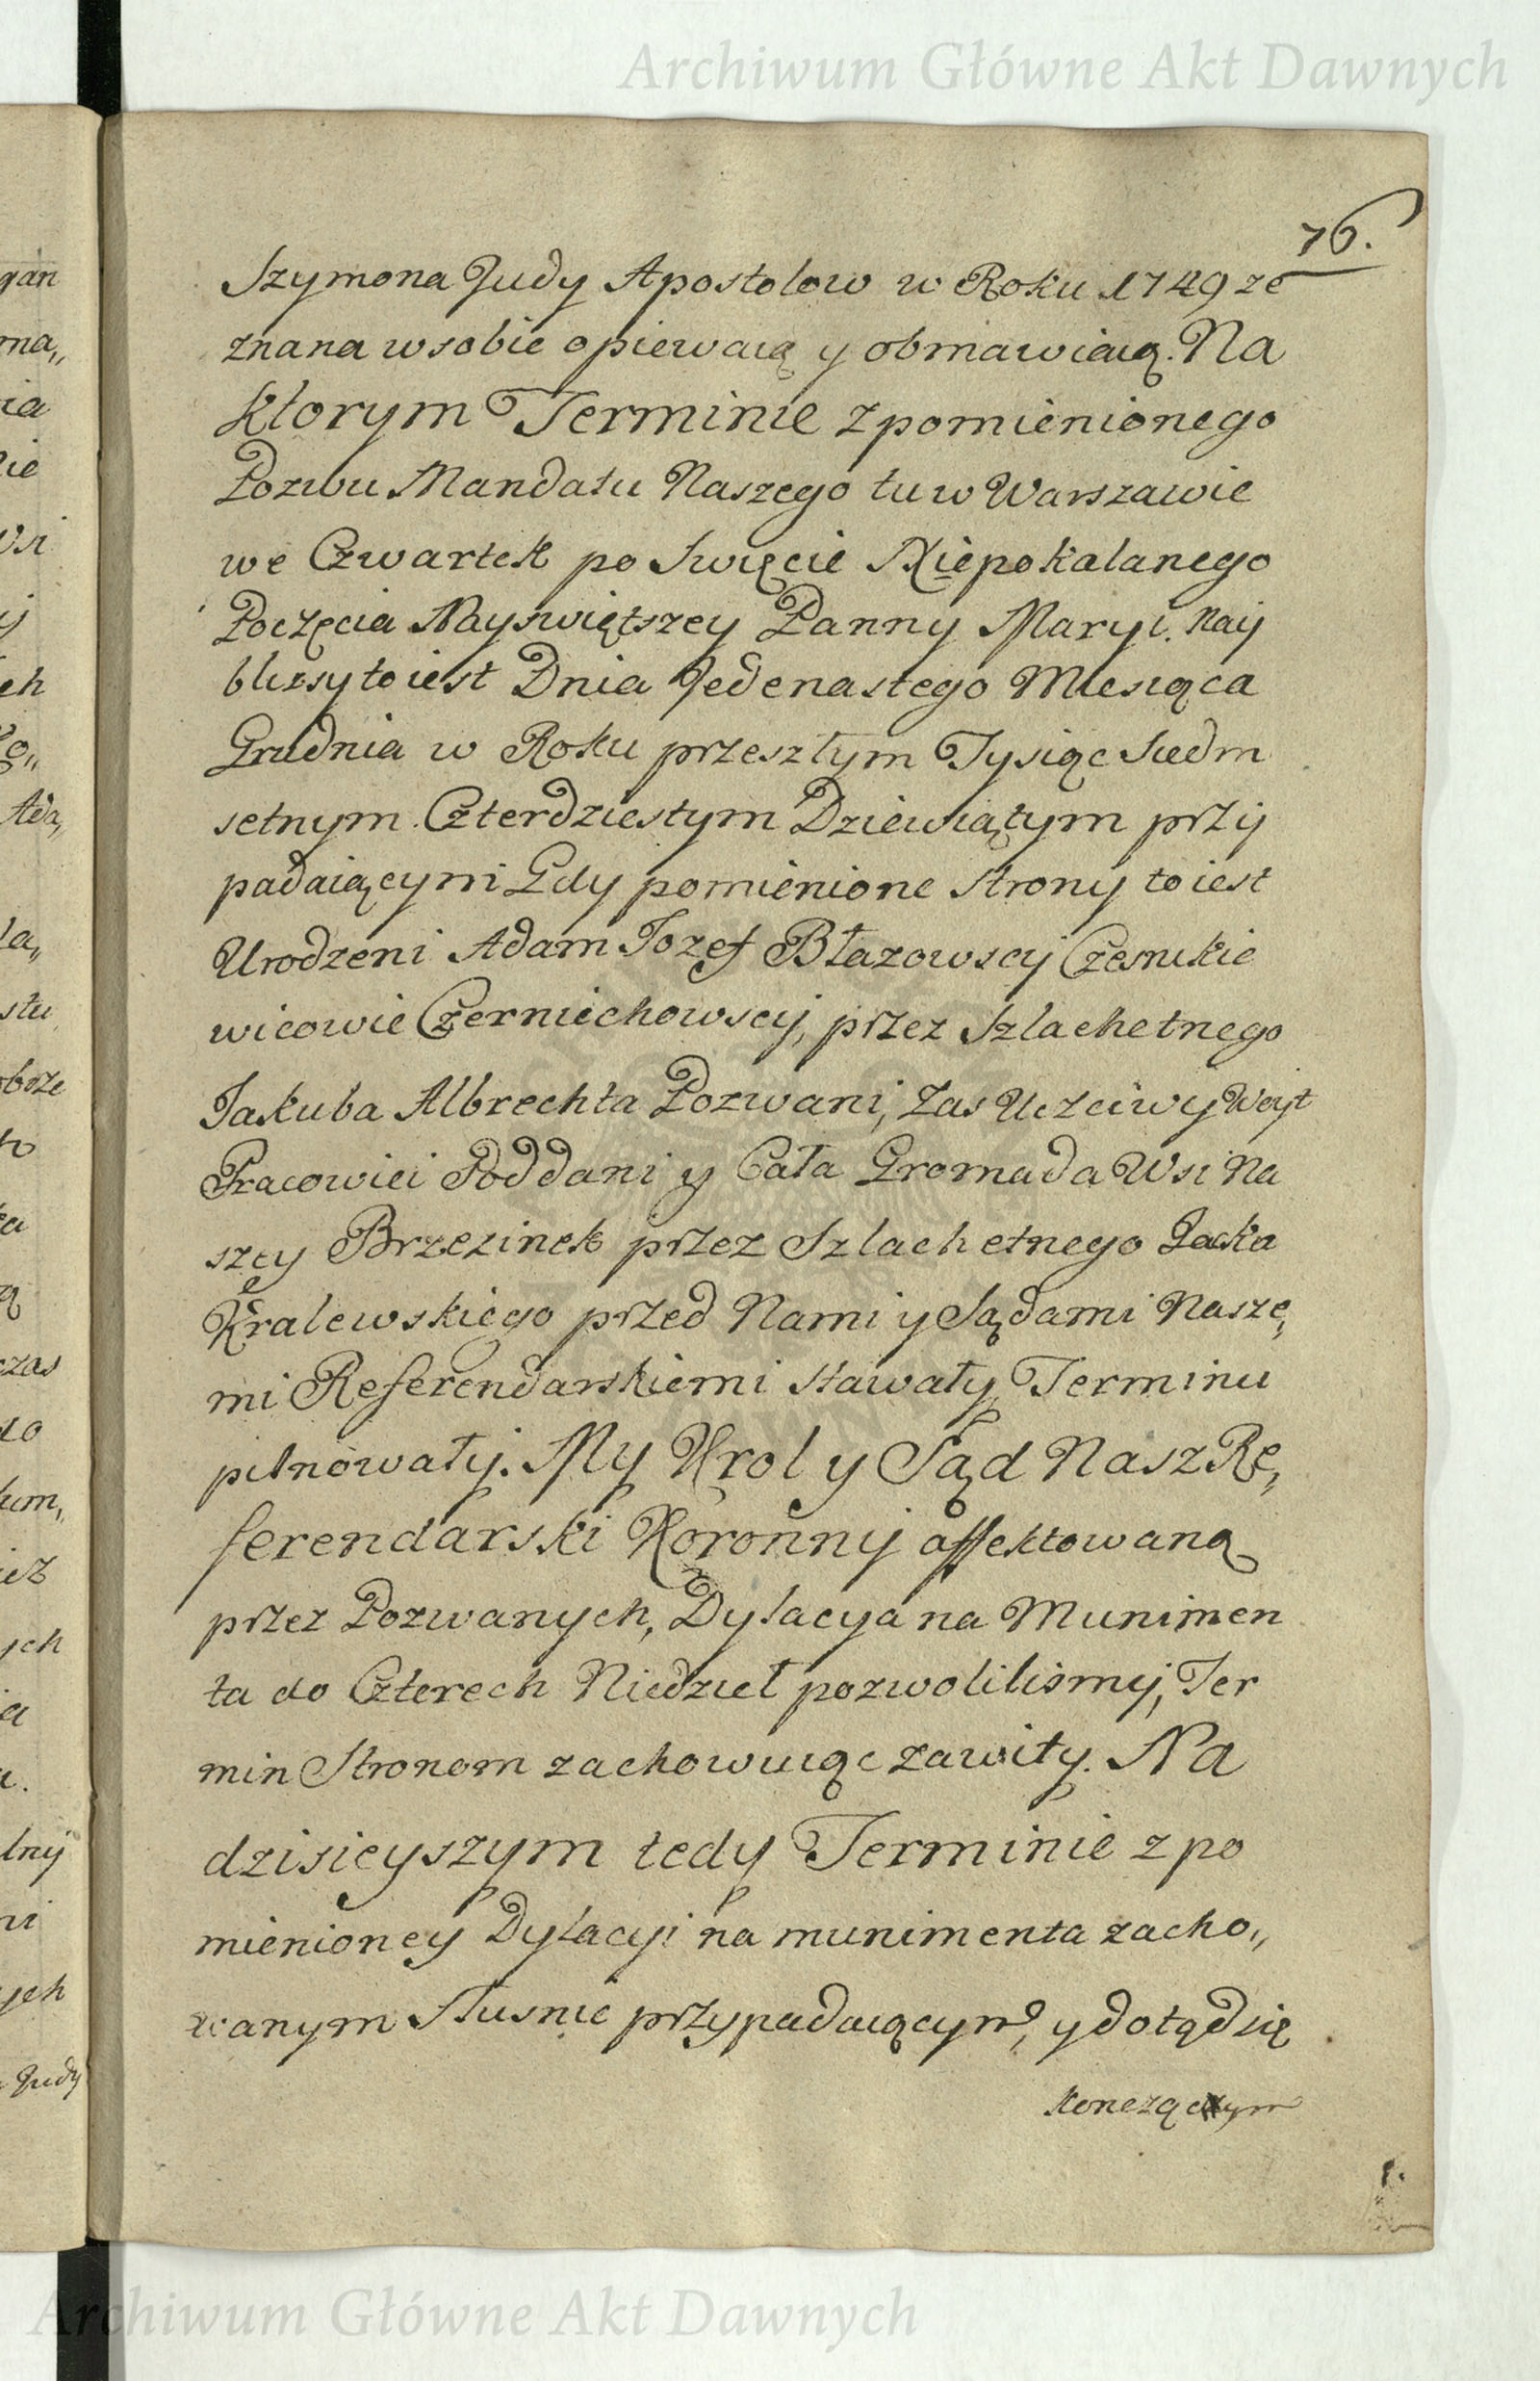 Archiwum Główne Akt Dawnych
76.
Szymona Judy Apostolow w Roku 1749 ze
znana w sobie opiewaią y obmawiaią. Na
ktorym Terminie z pomienionego
Pozwu Mandatu Naszego tu w Warszawie
we Czwartek po Swięcie Niepokalanego
Poczęcia Nayswiętszey Panny Maryi. Nay
bliszy to iest Dnia Jedenastego Miesiąca
Grudnia w Roku przeszłym Tysiąc Siedm
setnym Czterdziestym Dziewiątym przy
padaiącym Gdy pomienione strony to iest
Urodzeni Adam Jozef Błazowscy Czesnikie
wicowie Czerniechowscy, przez Szlachetnego
Jakuba Albrechta Pozwani, Zas Uczciwy Woyt
Pracowici Poddani y Cała Gromada Wsi Na
szey Brzezinek przez Szlachetnego Jacka
Kralewskiego przed Nami y Sądami Nasze,
mi Referendarskiemi stawały, Terminu
pilnowały. My Krol y Sąd Nasz Re,
ferendarski Koronny affektowaną
przez Pozwanych, Dylacya na Munimen
ta do Czterech Niedziel pozwolilismy, Ter
min Stronom zachowuiąc zawity. Na
dzisieyszym tedy Terminie z po
mienioney Dylacyi na munimenta zacho,,
wanym słusnie przypadaiącym, y dotąd się
konczącym
gan
ma,,
ia
ie
Wsi
eh
Ada,
la,,
stu
obrze
ka
czas
do
ych
lny
ni
ych
Judy
Archiwum Główne Akt Dawnych